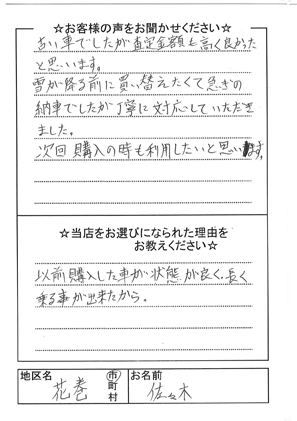 ☆お客様の声をお聞かせください☆
古い車でしたが査定金額も高く良かった
と思います。
雪が降る前に買い替えたくて急ぎの
納車でしたが丁寧に対応していただき
ました。
次回購入の時も利用したいと思います。
☆当店をお選びになられた理由を
お教えください☆
以前購入した車が状態が良く、長く
乗る事が出来たから。
地区名 花巻 市町村 お名前 佐々木